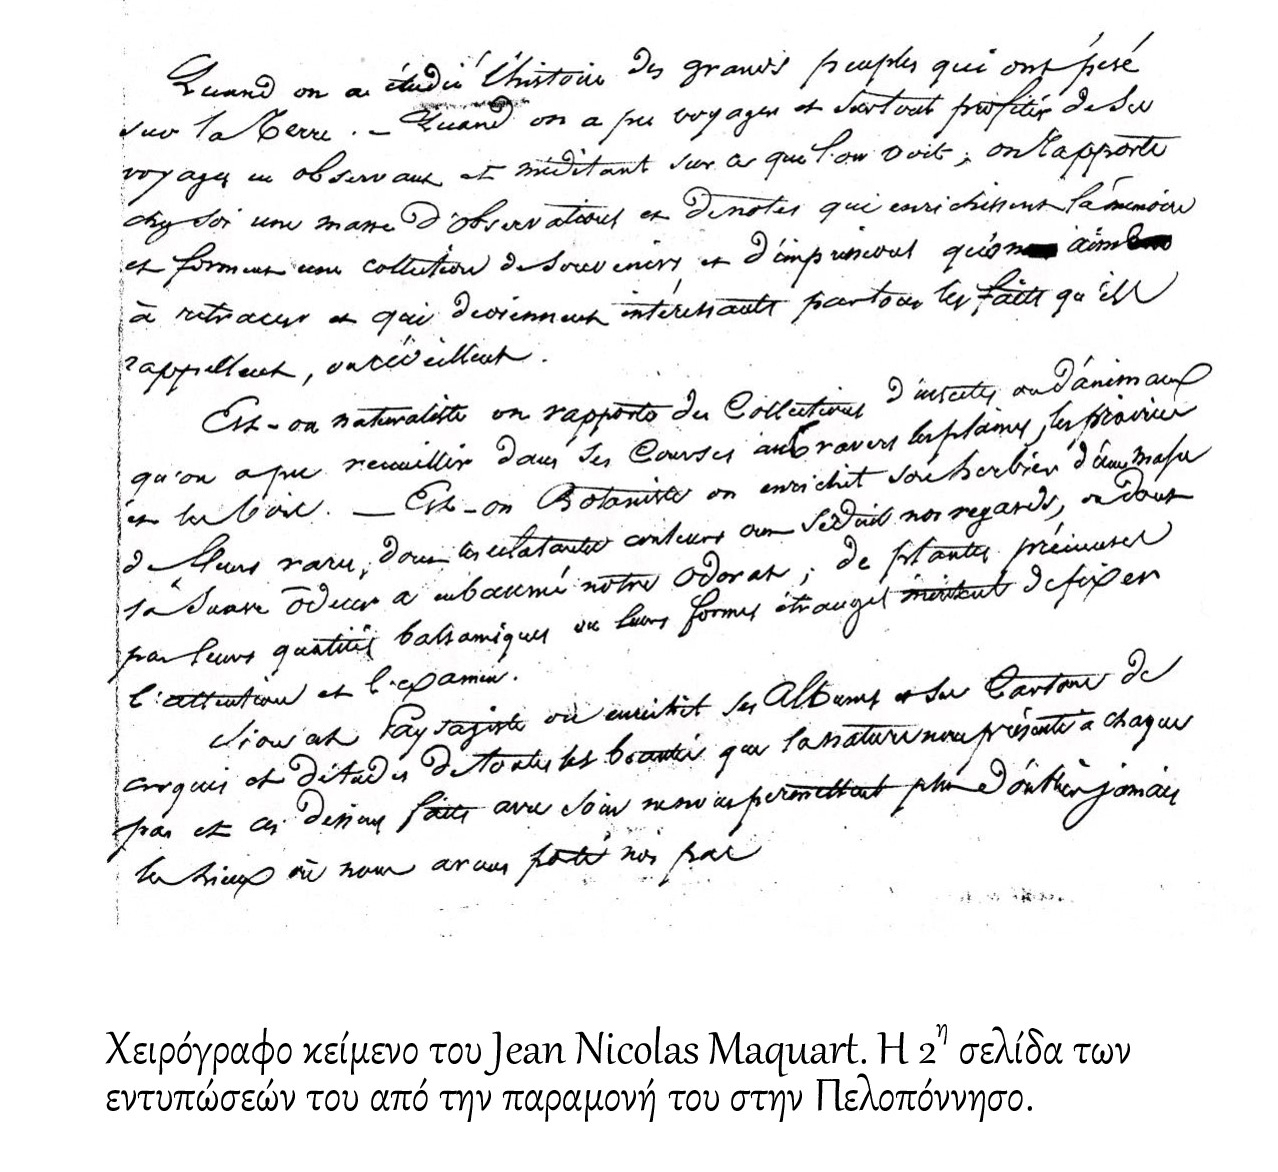 Quand on a étudié l'histoire des grands peuples qui ont pesé
sur la Terre. – Quand on a pu voyager et surtout profiter de ses
voyages en observant et méditant sur ce que l'on voit ; on rapporte
chez soi une masse d'observations et de notes qui enrichissent la mémoire
et forment une collection de souvenirs et d'impressions qu'on aime
à retracer et qui deviennent intéressants par tous les faits qu'ils
rappellent, ou réveillent.
Est-on naturaliste on rapporte des Collections d'insectes ou d'animaux
qu'on a pu recueillir dans ses Courses au travers les plaines, les prairies
et les bois. — Est-on Botaniste on enrichit son herbier d'une masse
de fleurs rares, dont les éclatantes couleurs ont séduit nos regards, ou dont
la suave odeur a embaumé notre odorat ; de plantes précieuses
par leurs qualités balsamiques ou leurs formes étranges méritent de fixer
l'attention et l'examen.
Si on est Paysagiste on enrichit ses Albums et ses Cartons de
croquis et d'études de toutes les beautés que la nature nous présente à chaque
pas et ces dessins faits avec soin ne nous permettent plus d'oublier jamais
les lieux où nous avons porté nos pas
Χειρόγραφο κείμενο του Jean Nicolas Maquart. Η 2η σελίδα των
εντυπώσεών του από την παραμονή του στην Πελοπόννησο.